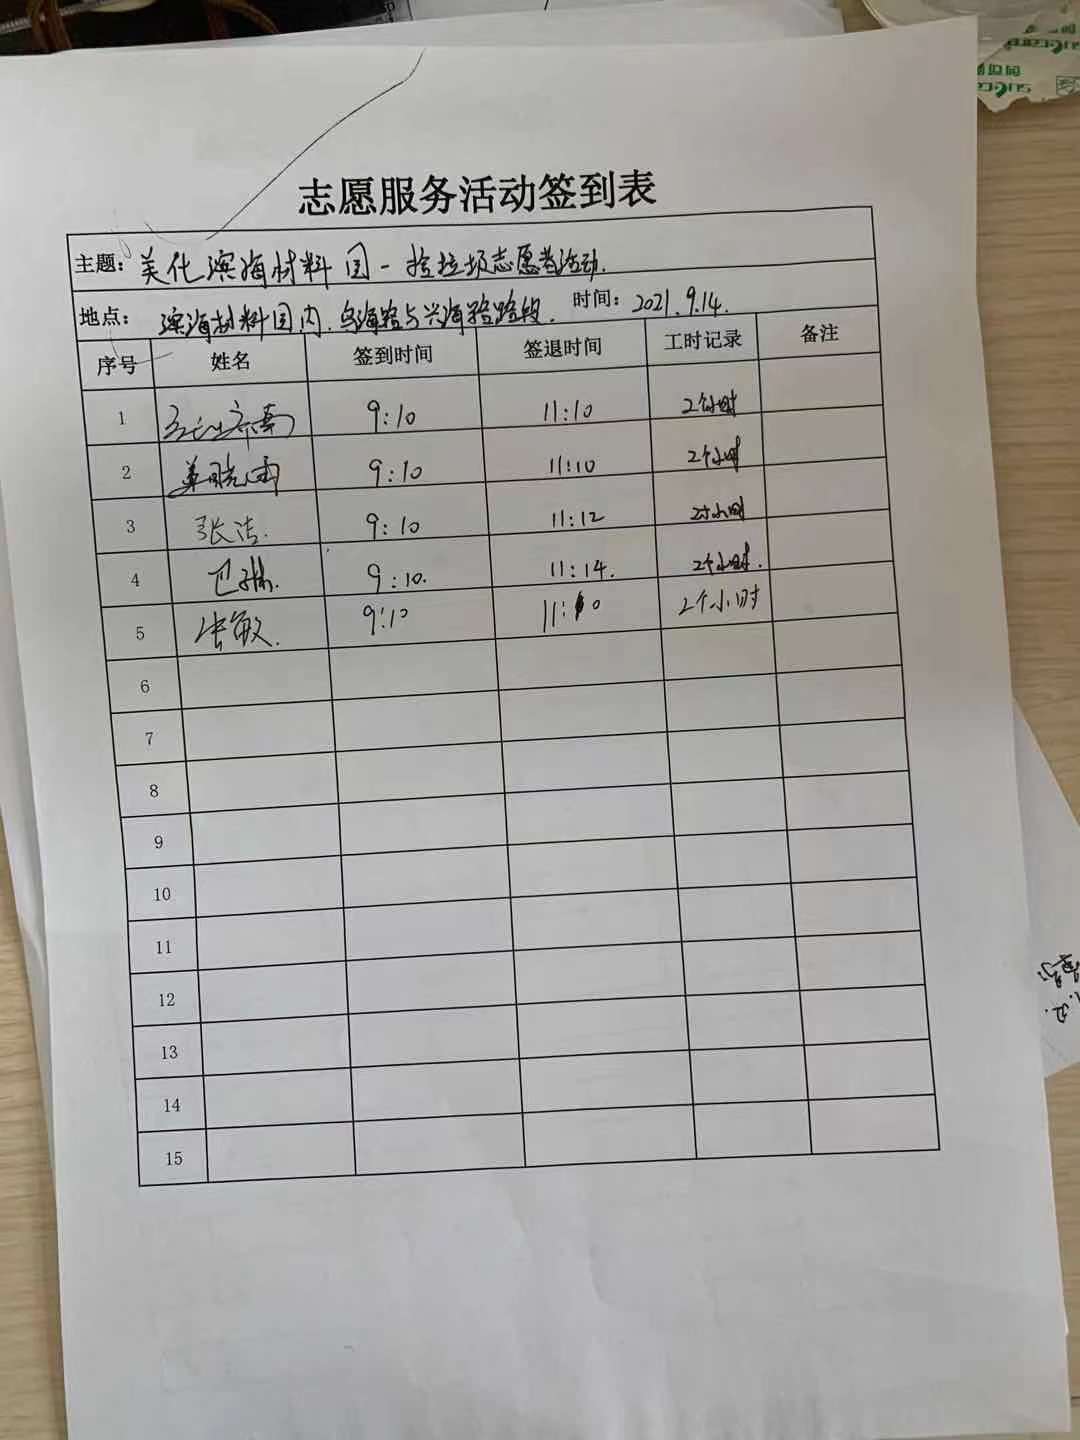 志愿服务活动签到表
主题: 美化滨海材料园-捡垃圾志愿者活动.
地点: 滨海材料园内. 乌海路与兴海路路段. 时间: 2021.9.14.
序号 姓名 签到时间 签退时间 工时记录 备注
1 9:10 11:10 2个小时
2 9:10 11:10 2个小时
3 张洁. 9:10 11:12 2个小时
4 9:10. 11:14. 2个小时.
5 张敏. 9:10 11:10 2个小时
6
7
8
9
10
11
12
13
14
15